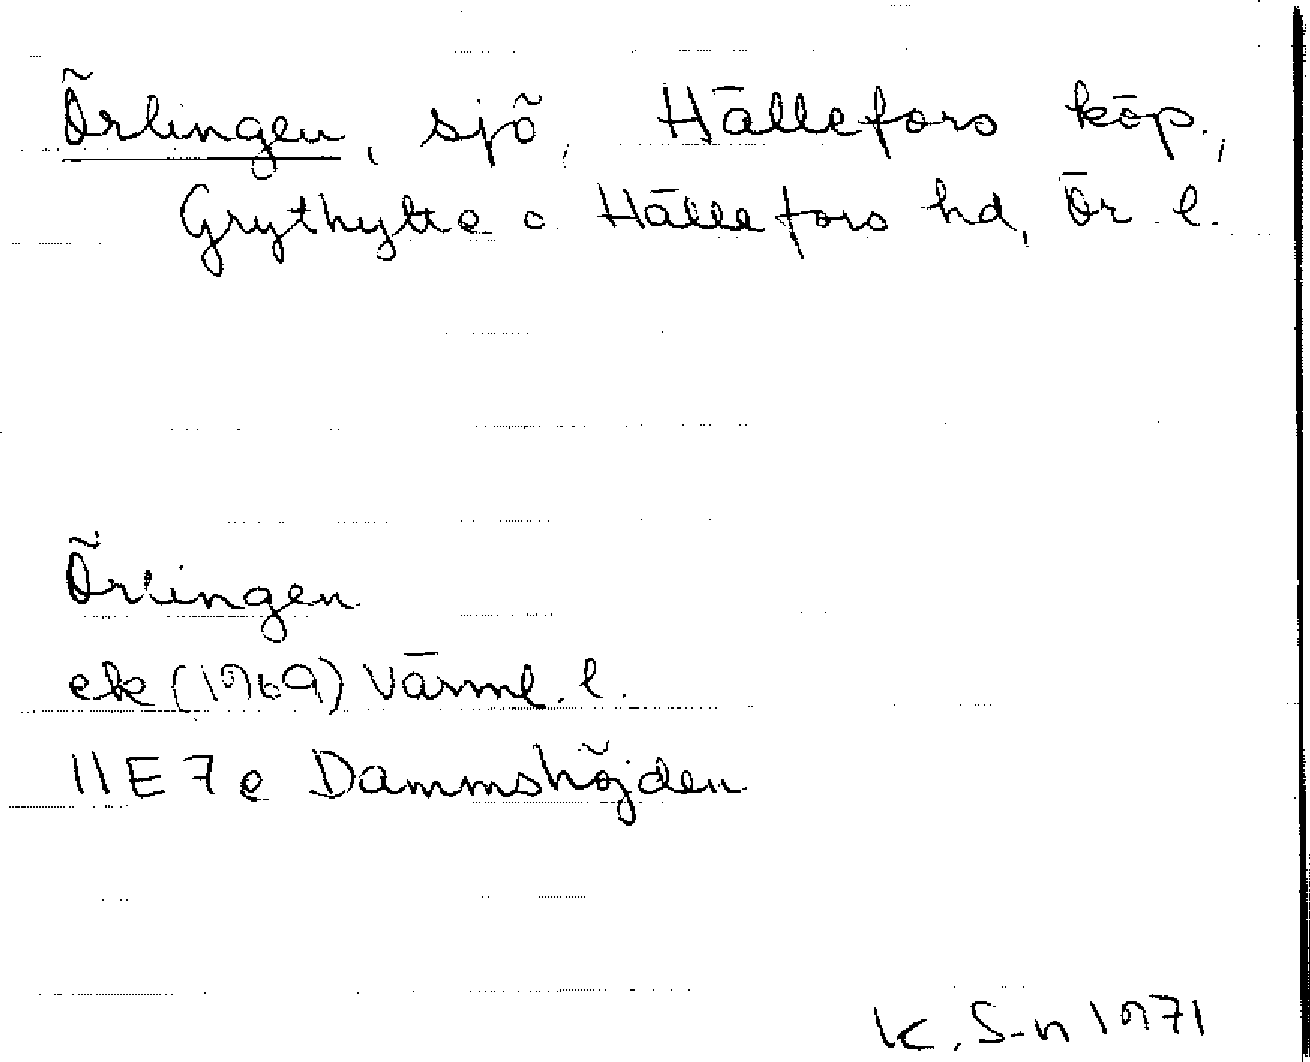 Örlingen, sjö, Hällefors köp.,
Grythytte o Hällefors hd, Ör. l.
Örlingen
ek (1969) Värml. l.
11E 7e Dammshöjden
K. S-n 1971